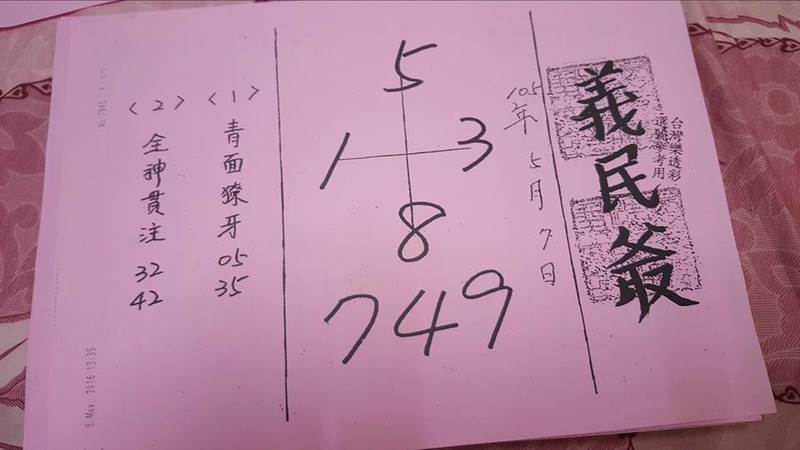 台灣樂透彩
選號參考用
義民爺
105年5月7日
5
1 3
8
749
(1) 青面獠牙 05 35
(2) 全神貫注 32 42
8.May. 2016 13:35